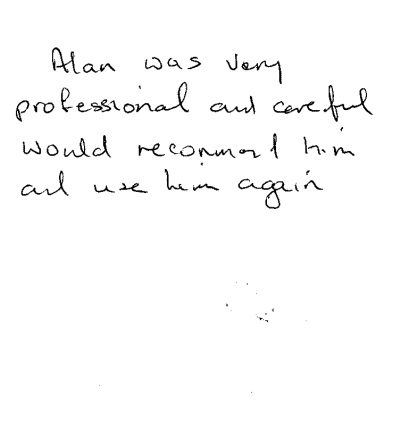 Alan was very
professional and careful
would recommend him
and use him again